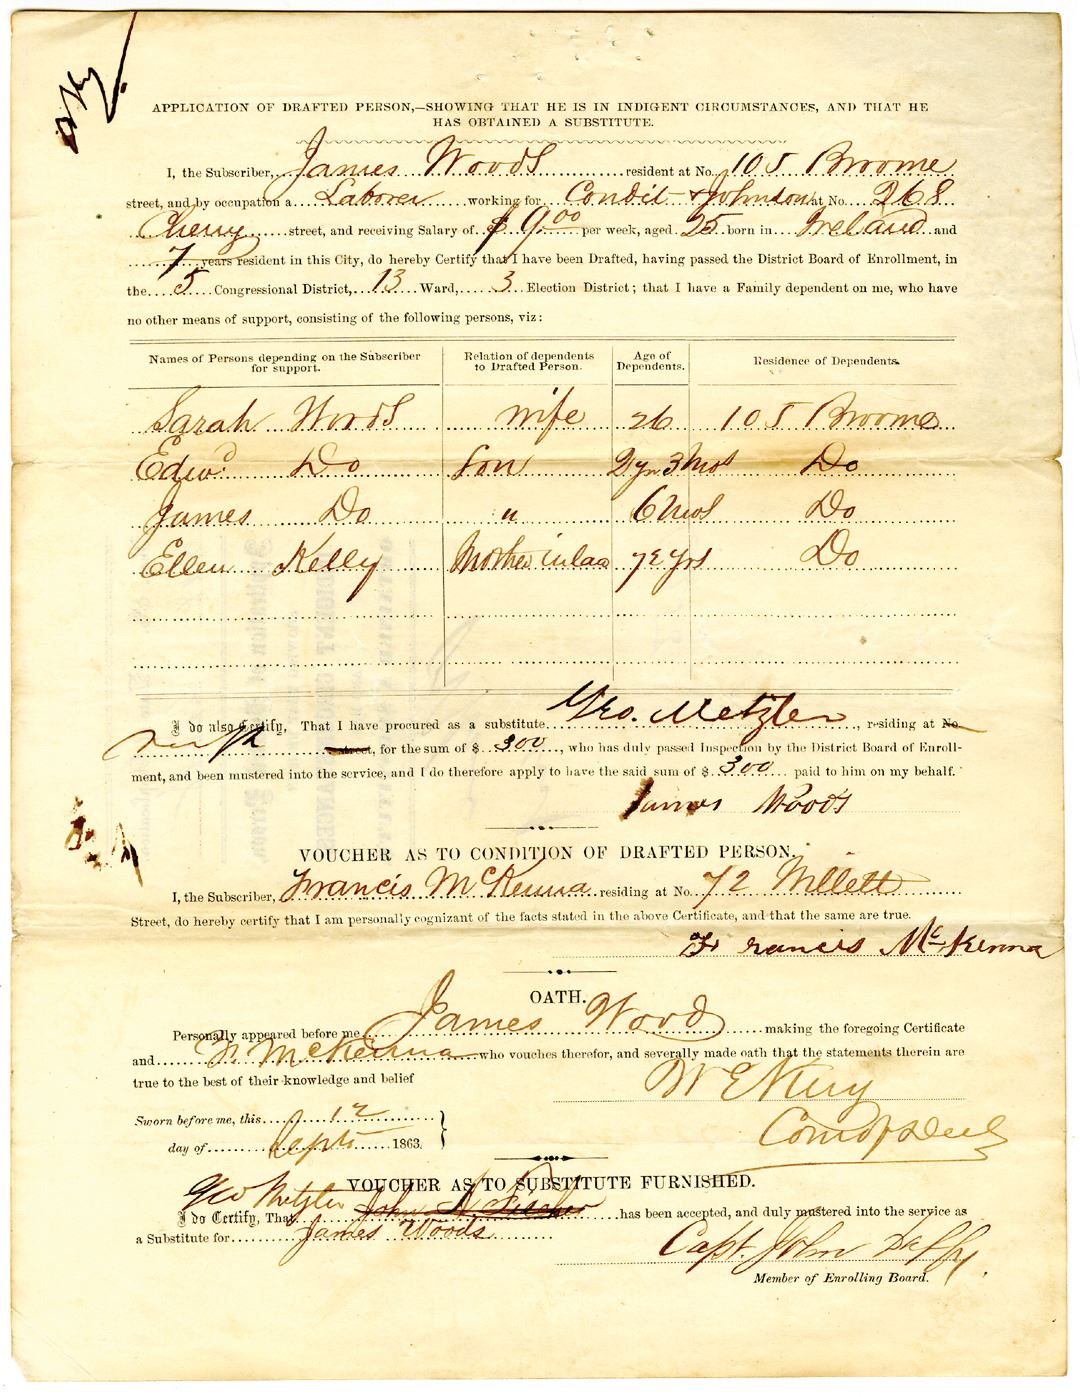 APPLICATION OF DRAFTED PERSON,—SHOWING THAT HE IS IN INDIGENT CIRCUMSTANCES, AND THAT HE
HAS OBTAINED A SUBSTITUTE.
I, the Subscriber, James Woods resident at No. 105 Broome
street, and by occupation a Laborer working for Condit & Johnson at No. 268
Cherry street, and receiving Salary of $ 9.00 per week, aged 25 born in Ireland and
7 years resident in this City, do hereby Certify that I have been Drafted, having passed the District Board of Enrollment, in
the 5 Congressional District, 13 Ward, 3 Election District; that I have a Family dependent on me, who have
no other means of support, consisting of the following persons, viz:
Names of Persons depending on the Subscriber for support. Relation of dependents to Drafted Person. Age of Dependents. Residence of Dependents.
Sarah Woods wife 26 105 Broome
Edwd Do Son 2 yrs 3 Mos Do
James Do " 6 Mos Do
Ellen Kelly Mother in law 72 yrs Do
I do also Certify, That I have procured as a substitute Geo. Metzler, residing at No
street, for the sum of $ 300, who has duly passed Inspection by the District Board of Enroll-
ment, and been mustered into the service, and I do therefore apply to have the said sum of $ 300 paid to him on my behalf.
James Woods
VOUCHER AS TO CONDITION OF DRAFTED PERSON.
I, the Subscriber, Francis McKenna residing at No. 72 Willett
Street, do hereby certify that I am personally cognizant of the facts stated in the above Certificate, and that the same are true.
Francis McKenna
OATH.
Personally appeared before me James Wood making the foregoing Certificate
and Fr McKenna who vouches therefor, and severally made oath that the statements therein are
true to the best of their knowledge and belief
Sworn before me, this 12
day of Sept 1863.
Com of Deeds
VOUCHER AS TO SUBSTITUTE FURNISHED.
Geo Metzler
I do Certify, That John A. Fischer has been accepted, and duly mustered into the service as
a Substitute for James Woods
Capt. John Duffy.
Member of Enrolling Board.